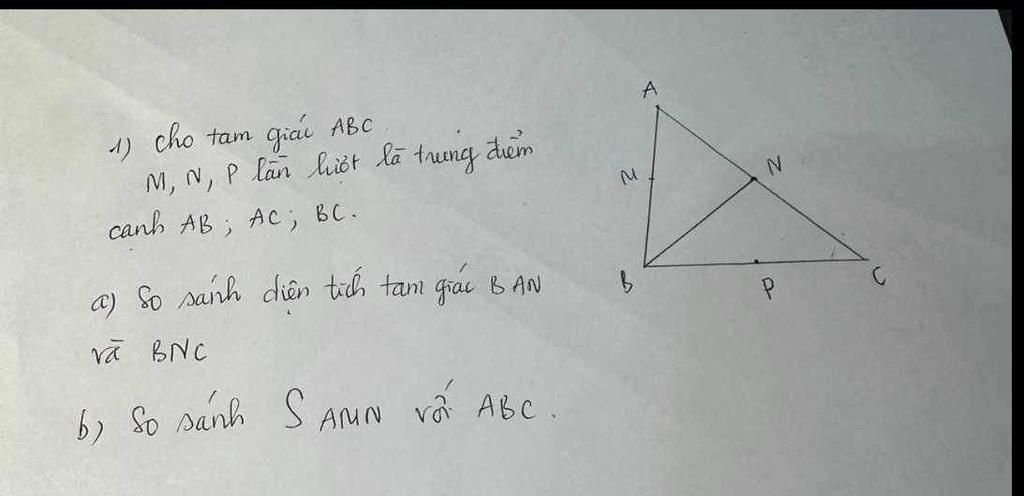 1) Cho tam giác ABC
M, N, P lần lượt là trung điểm
cạnh AB ; AC ; BC.
a) So sánh diện tích tam giác BAN
và BNC
b) So sánh S AMN với ABC.
A
M
N
B
P
C